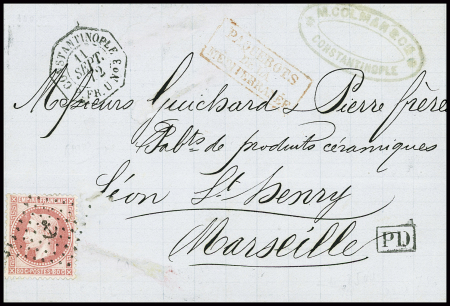 CONSTANTINOPLE
11
SEPT.
72
P. FR. U. N°3
PAQUEBOTS
M. COLMAN & CO
CONSTANTINOPLE
Messieurs Guichard & Pierre frères
Fabts de produits céramiques
Léon St. Henry
Marseille
PD
EMPIRE FRANÇAIS
80 C POSTES 80 C